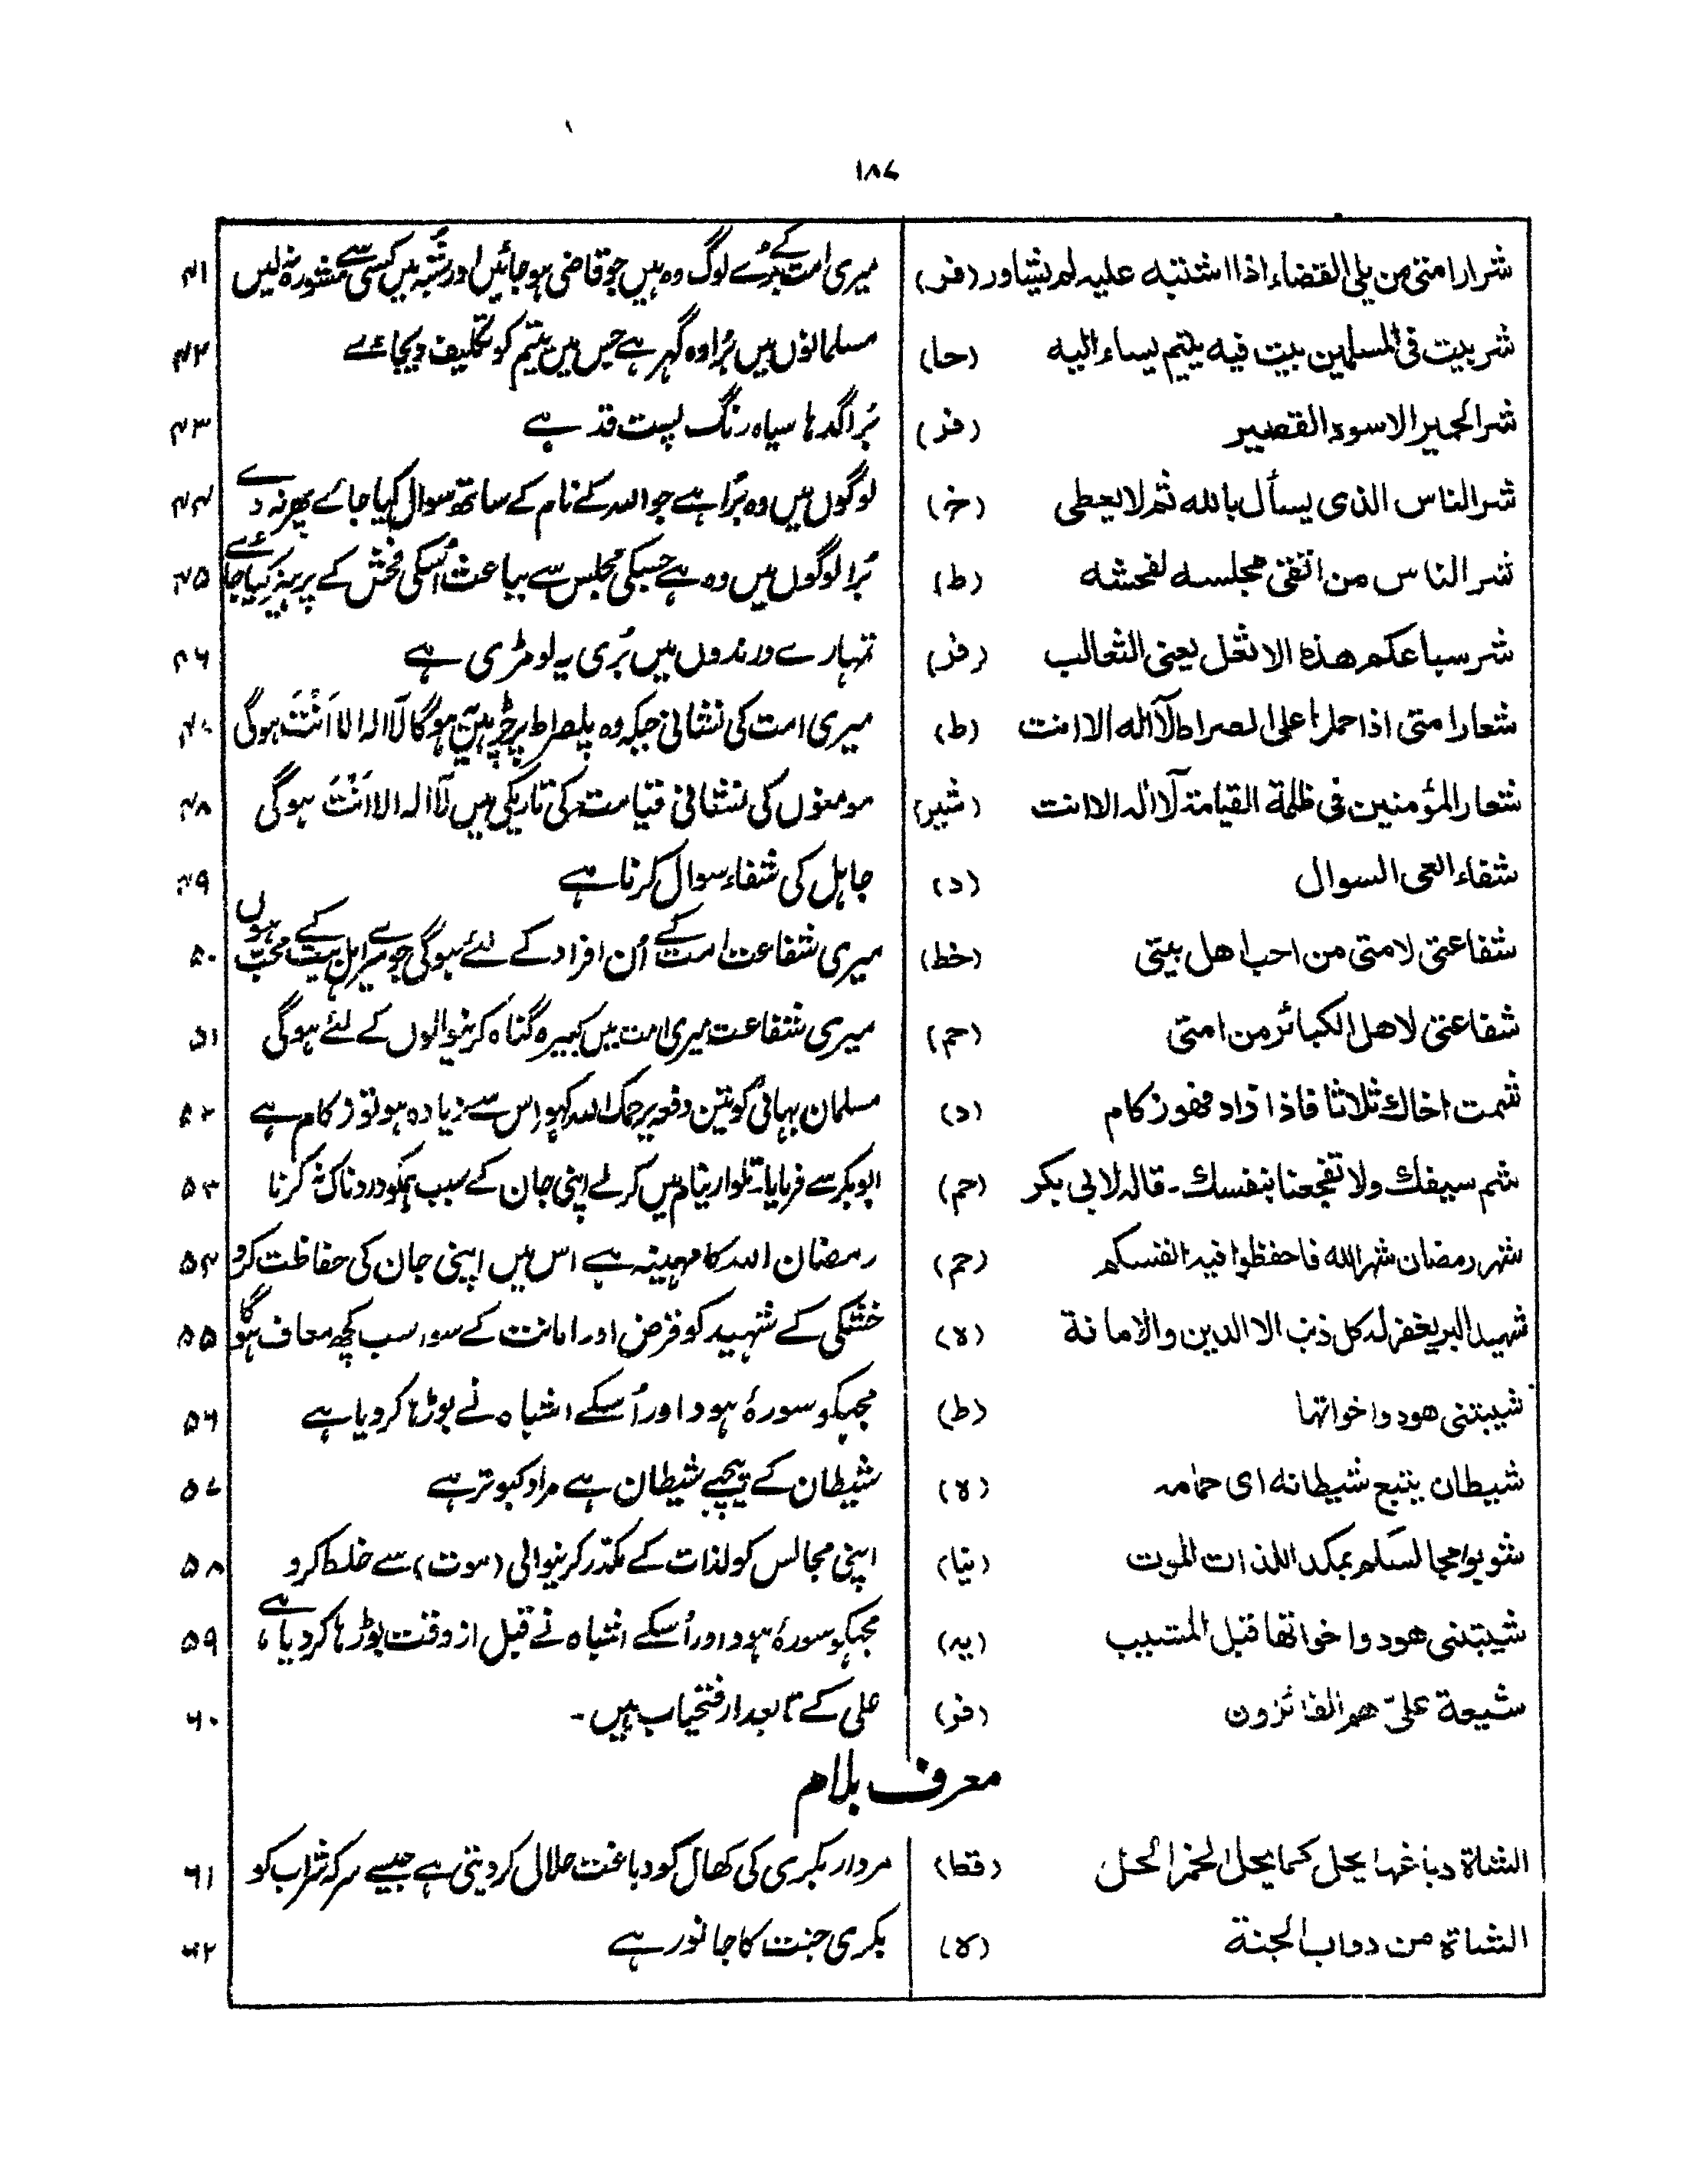 ۱۸۷
شرار امتی من یلی القضاء اذا اشتبه علیه لم یشاور (فر) میری امت کے بڑے لوگ وہ ہیں جو قاضی ہو جائیں اور شُبہ میں کسی سے مشورہ نہ لیں ۴۱
شر بیت فی المسلمین بیت فیه یتیم یساء الیه (حا) مسلمانوں میں بُرا وہ گہر ہے جس میں یتیم کو تکلیف دیجائے ۴۲
شر الحمیر الاسود القصیر (فر) بُرا گدہا سیاہ رنگ پست قد ہے ۴۳
شر الناس الذی یسأل بالله ثم لا یعطی (خ) لوگوں میں وہ بُرا ہے جو اللہ کے نام کے ساتھ سوال کیا جائے پھر نہ دے ۴۴
شر الناس من اتقی مجلسه لفحشه (ط) بُرا لوگوں میں وہ ہے جسکی مجلس سے بباعث اُسکی فحش کے پرہیز کیا جائے ۴۵
شر سباعکم هذه الاثعل یعنی الثعالب (فر) تمہارے درندوں میں بُری یہ لومڑی ہے ۴۶
شعار امتی اذا حملوا علی الصراط لآ اله الا انت (ط) میری امت کی نشانی جبکہ وہ پلصراط پر چڑہیں ہوگا لَا الہ الا اَنْتَ ہوگی ۴۷
شعار المؤمنین فی ظلمة القیامة لآ اله الا انت (شیر) مومنوں کی نشانی قیامت کی تاریکی میں لَا الہ الا اَنْتَ ہوگی ۴۸
شفاء العی السوال (د) جاہل کی شفاء سوال کرنا ہے ۴۹
شفاعتی لامتی من احب اهل بیتی (خط) میری شفاعت امت کے اُن افراد کے لئے ہوگی جو میرے اہل بیت کے محب ہوں ۵۰
شفاعتی لاهل الکبائر من امتی (حم) میری شفاعت میری امت میں کبیرہ گناہ کرنیوالوں کے لئے ہوگی ۵۱
شمت اخاك ثلاثا فاذا زاد فهو زکام (د) مسلمان بہائی کو تین دفعہ یرحمک اللہ کہو اس سے زیادہ ہو تو زکام ہے ۵۲
شم سیفك ولا تفجعنا بنفسك - قاله لابی بکر (حم) ابو بکر سے فرمایا۔ تلوار نیام میں کرلے اپنی جان کے سبب ہمکو دردناک نہ کرنا ۵۳
شهر رمضان شهر الله فاحفظوا فیه انفسکم (حم) رمضان اللہ کا مہینہ ہے اس میں اپنی جان کی حفاظت کرو ۵۴
شهید البر یغفر له کل ذنب الا الدین والامانة (ہ) خشکی کے شہید کو قرض اور امانت کے سوا سب کچھ معاف ہوگا ۵۵
شیبتنی هود واخواتها (ط) مجہکو سورۂ ہود اور اُسکے اشباہ نے بوڑہا کردیا ہے ۵۶
شیطان یتبع شیطانه ای حمامه (ہ) شیطان کے پیچہے شیطان ہے مراد کبوتر ہے ۵۷
شوبوا مجالسکم بمکدر اللذات الموت (نیا) اپنی مجالس کو لذات کے مکدّر کرنیوالی (موت) سے خلط کرو ۵۸
شیبتنی هود واخواتها قبل المشیب (یہ) مجہکو سورۂ ہود اور اُسکے اشباہ نے قبل از وقت بوڑہا کردیا ہے، ۵۹
شیعة علیّ هم الفائزون (فر) علی کے تابعدار فتحیاب ہیں۔ ۶۰
معرف بلام
الشاة دباغها یحل کما یحل الخمر الخل (قط) مردار بکری کی کھال کو دباغت حلال کردیتی ہے جیسے سرکہ شراب کو ۶۱
الشاة من دواب الجنة (ہ) بکری جنت کا جانور ہے ۶۲